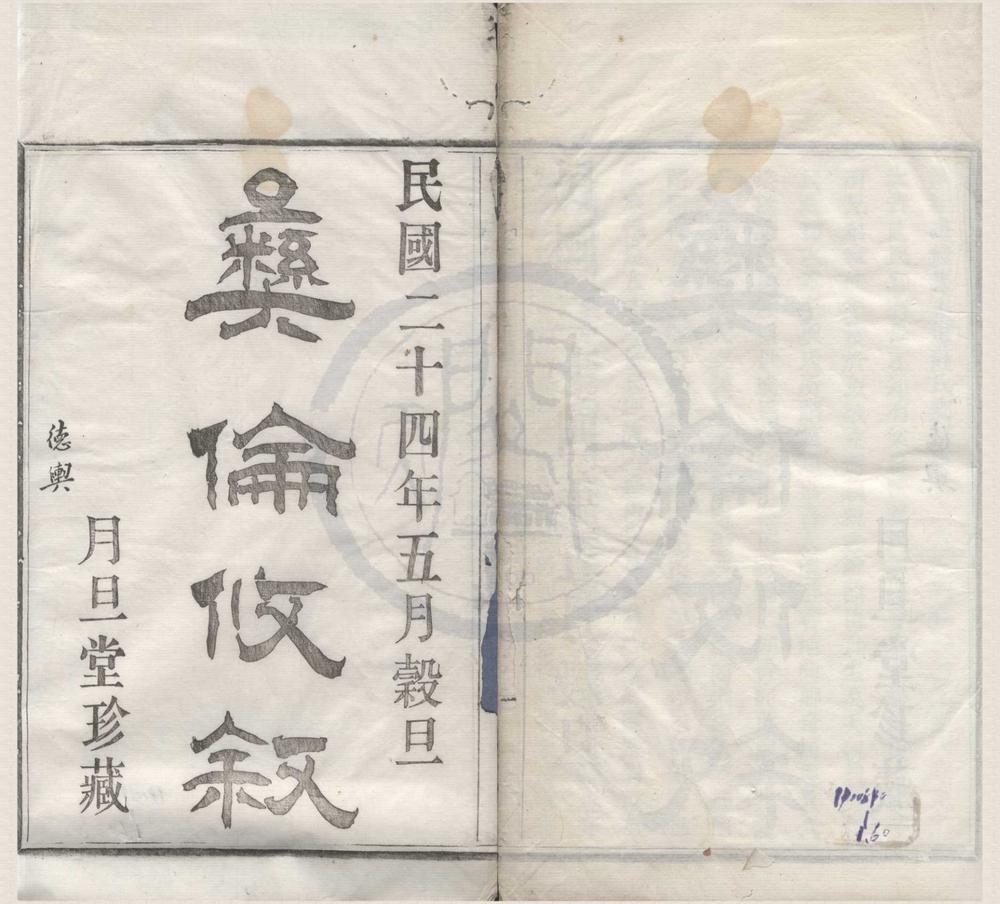 民國二十四年五月穀旦
彝倫攸敘
月旦堂珍藏
德輿